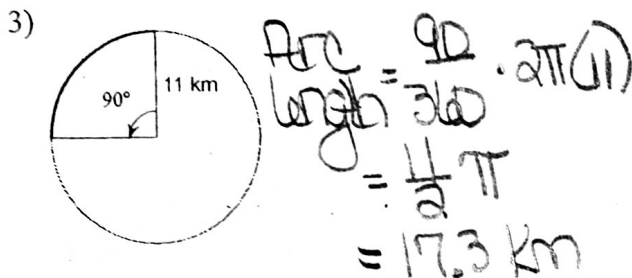 3)
90°
11 km
Arc length = 90/360 · 2π(11)
= 11/2 π
= 17.3 km